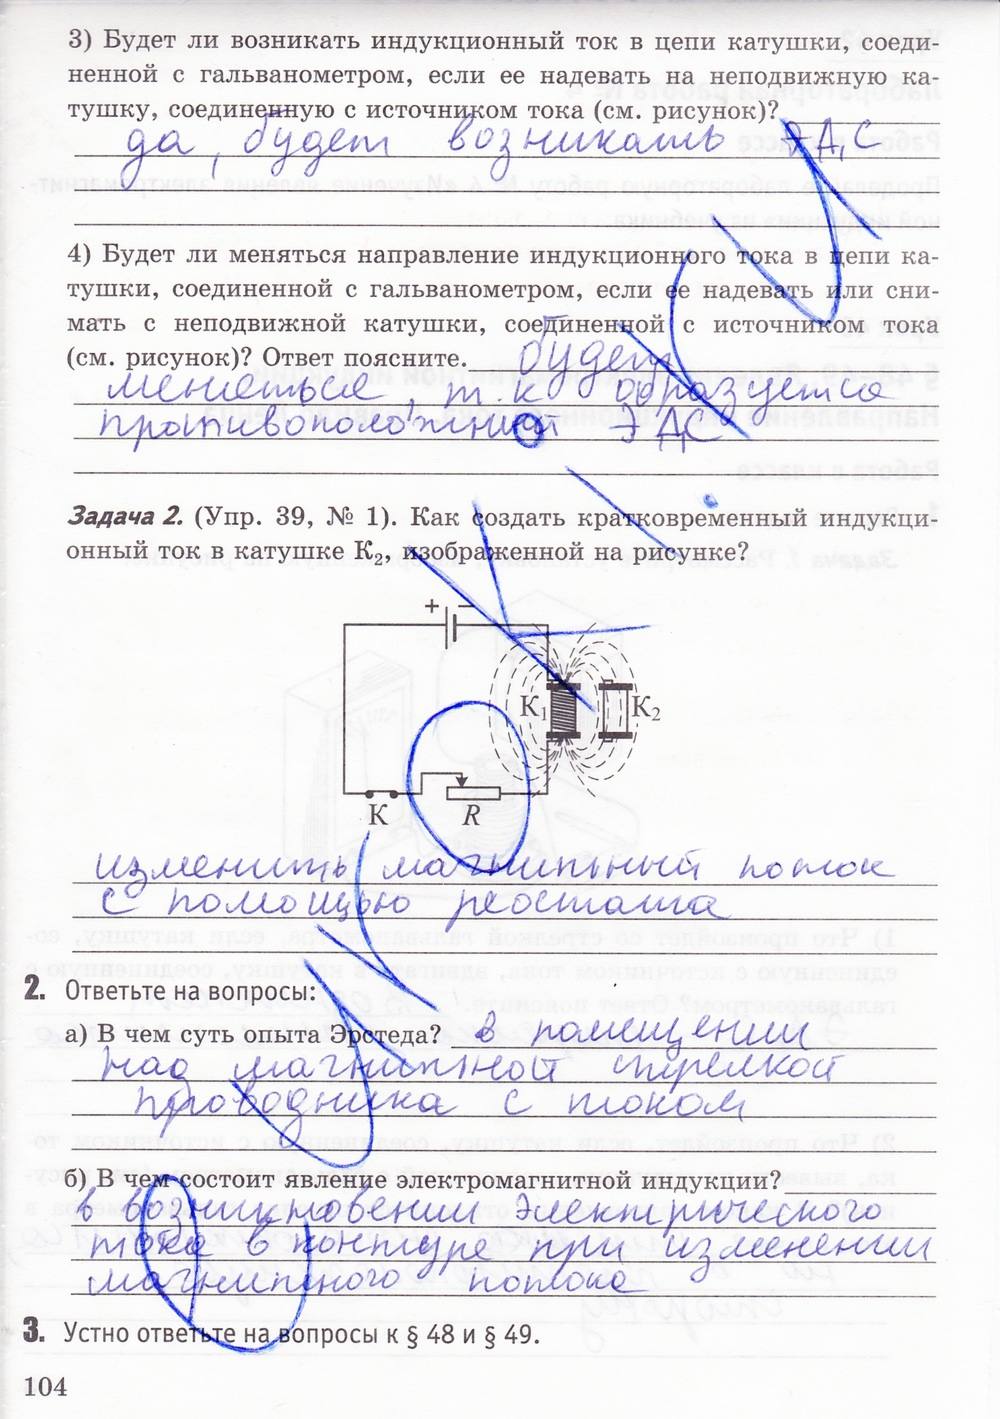 3) Будет ли возникать индукционный ток в цепи катушки, соеди-
ненной с гальванометром, если ее надевать на неподвижную ка-
тушку, соединенную с источником тока (см. рисунок)?
да, будет возникать ЭДС
4) Будет ли меняться направление индукционного тока в цепи ка-
тушки, соединенной с гальванометром, если ее надевать или сни-
мать с неподвижной катушки, соединенной с источником тока
(см. рисунок)? Ответ поясните. будет
меняться, т.к. образуется
противоположная ЭДС
Задача 2. (Упр. 39, № 1). Как создать кратковременный индукци-
онный ток в катушке К₂, изображенной на рисунке?
+ −
К₁ К₂
К R
изменить магнитный поток
с помощью реостата
2. Ответьте на вопросы:
а) В чем суть опыта Эрстеда? в помещении
над магнитной стрелкой
проводника с током
б) В чем состоит явление электромагнитной индукции?
в возникновении электрического
тока в контуре при изменении
магнитного потока
3. Устно ответьте на вопросы к § 48 и § 49.
104